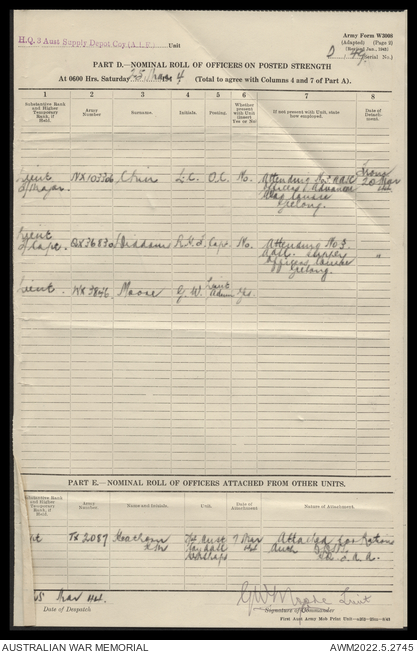 H.Q. 3 Aust Supply Depot Coy (A.I.F.) Unit
Army Form W3008
(Adapted) (Page 2)
(Revised Jan., 1943)
(Serial No.)
PART D.—NOMINAL ROLL OF OFFICERS ON POSTED STRENGTH
At 0600 Hrs. Saturday 25 Mar 4 (Total to agree with Columns 4 and 7 of Part A).
1 2 3 4 5 6 7 8
Substantive Rank and Higher Temporary Rank, if Held.
Army Number
Surname.
Initials.
Posting.
Whether present with Unit (Insert Yes or No)
If not present with Unit, state how employed.
Date of Detachment.
From
Lieut NX103306 Chin L.C. O.C. No. Attending
T/Major 20 Mar
Geelong.
Lieut
T/Capt. QX36830 Siddans R.H.F. Capt. No. Attending No 3
officers course "
Geelong
Lieut. WX3846 Moore G.W. Lieut Admin Yes.
PART E.—NOMINAL ROLL OF OFFICERS ATTACHED FROM OTHER UNITS.
Substantive Rank and Higher Temporary Rank, if Held.
Army Number
Name and Initials.
Unit.
Date of Attachment
Nature of Attachment.
TX2087 Aust 7 Mar Attached for Rations
Auth
Mar 44.
Date of Despatch
GW Moore Lieut
Signature of Commander
First Aust Army Mob Print Unit
AUSTRALIAN WAR MEMORIAL
AWM2022.5.2745